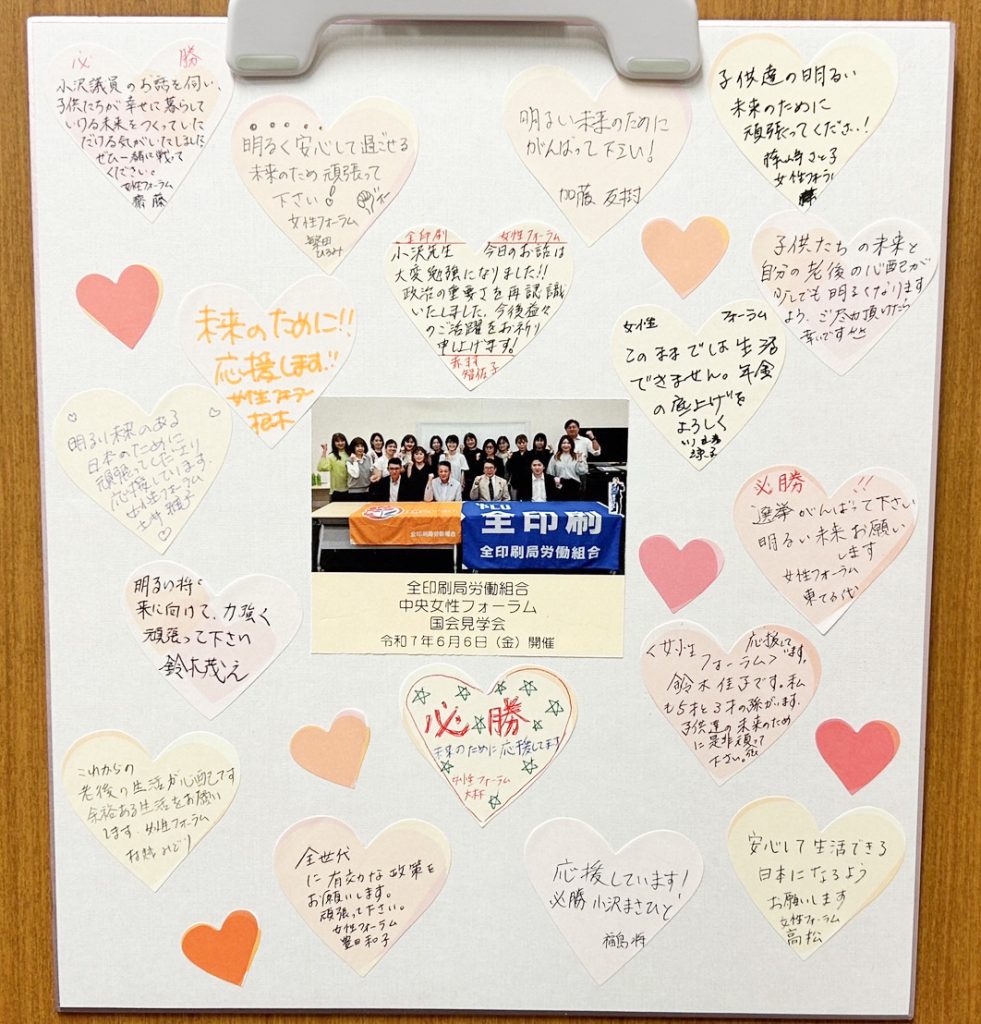 必 勝
小沢議員のお話を伺い、
子供たちが幸せに暮らして
いける未来をつくっていた
だける気がいたしました
ぜひ一緒に戦って
ください。
女性フォーラム
齋藤
明るく安心して過ごせる
未来のため頑張って
下さい!
女性フォーラム
ひろみ
明るい未来のために
がんばって下さい!
加藤 友樹
子供達の明るい
未来のために
頑張ってください!
さと子
女性フォーラム
全印刷 女性フォーラム
小沢先生 今日のお話は
大変勉強になりました!!
政治の重要さを再認識
いたしました。今後益々
のご活躍をお祈り
申し上げます!
赤羽
智佐子
子供たちの未来と
自分の老後の心配が
少しでも明るくなります
よう、ご尽力頂けたら
幸いです
未来のために!!
応援します!!
女性フォーラム
女性 フォーラム
このままでは生活
できません。年金
の底上げを
よろしく
明るい未来のある
日本のために
応援しています。
女性フォーラム
必勝!!
選挙がんばって下さい
明るい未来お願い
します
女性フォーラム
PLU
全印刷
全印刷局労働組合
全印刷局労働組合
全印刷局労働組合
中央女性フォーラム
国会見学会
令和7年6月6日(金)開催
明るい将
来に向けて、力強く
頑張って下さい
鈴木茂之
<女性 応援して
フォーラム> います。
鈴木佳子です。私
も5才と3才の孫がいます。
子供達の未来のため
に是非頑張って
下さい。
必勝
未来のために応援してます
女性フォーラム
大林
これからの
老後の生活が心配です
余裕ある生活をお願い
します。女性フォーラム
村越みどり
全世代
に有効な政策を
お願いします。
頑張って下さい。
女性フォーラム
豊田和子
応援しています!
必勝 小沢まさひと
福島 将
安心して生活できる
日本になるよう
お願いします
女性フォーラム
高松